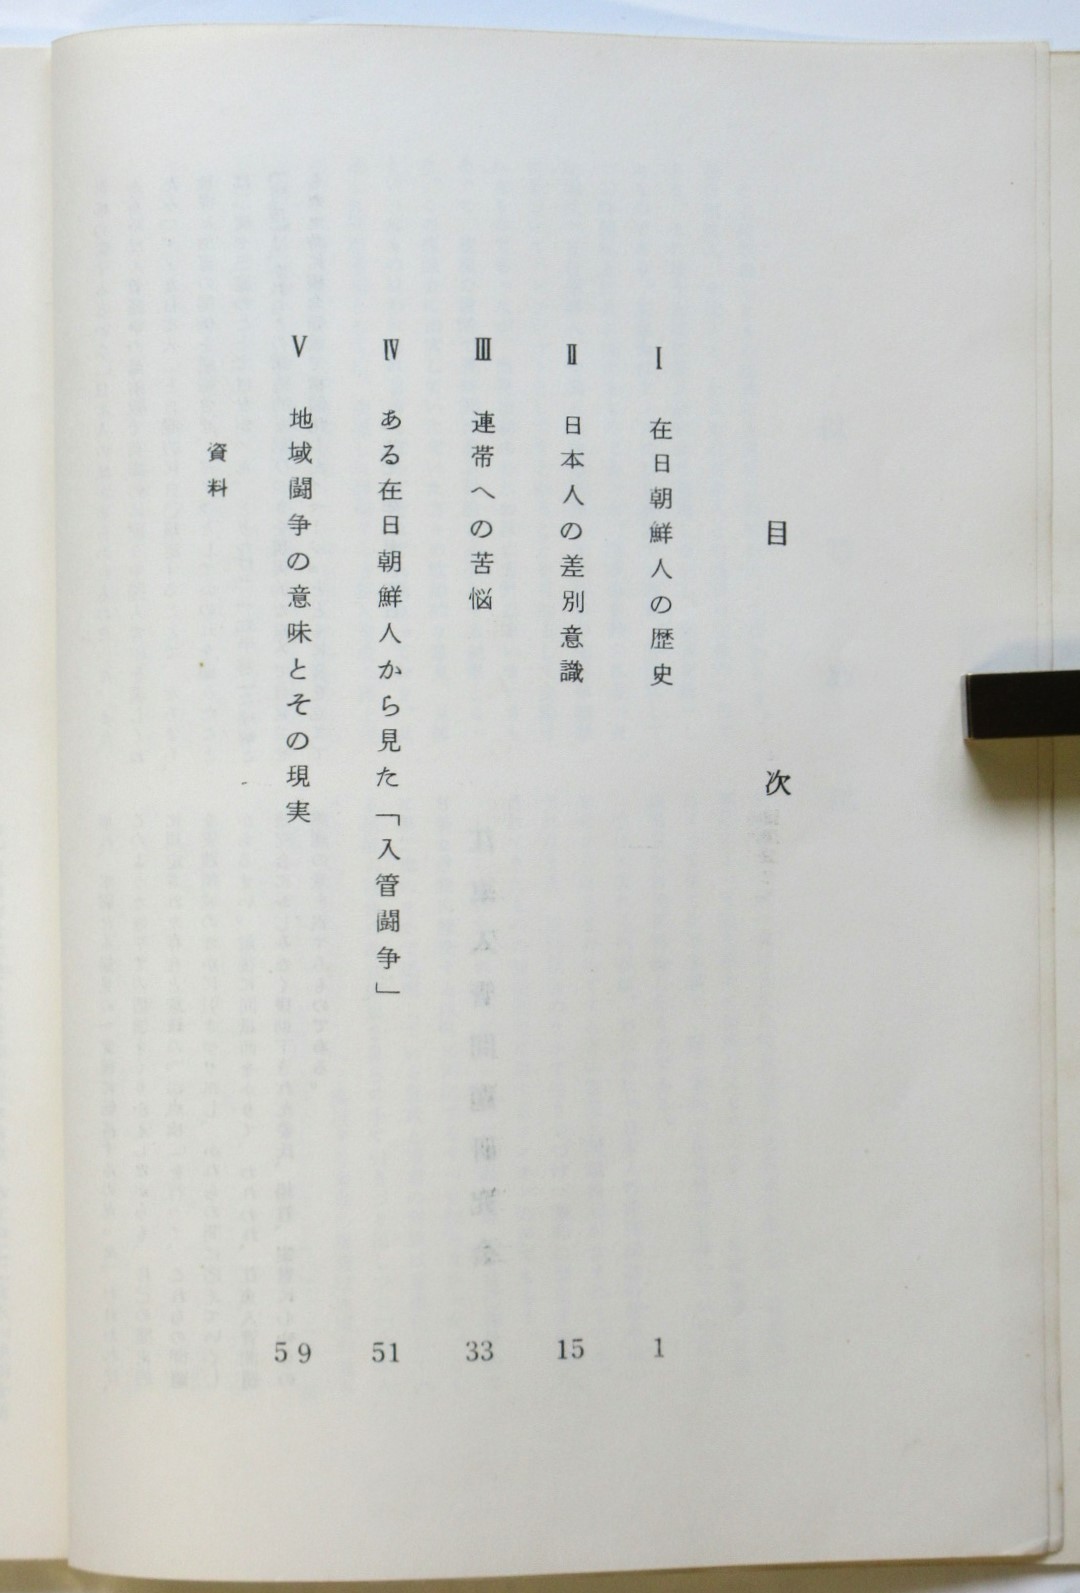 目次
Ⅰ 在日朝鮮人の歴史 1
Ⅱ 日本人の差別意識 15
Ⅲ 連帯への苦悩 33
Ⅳ ある在日朝鮮人から見た「入管闘争」 51
Ⅴ 地域闘争の意味とその現実 59
資料